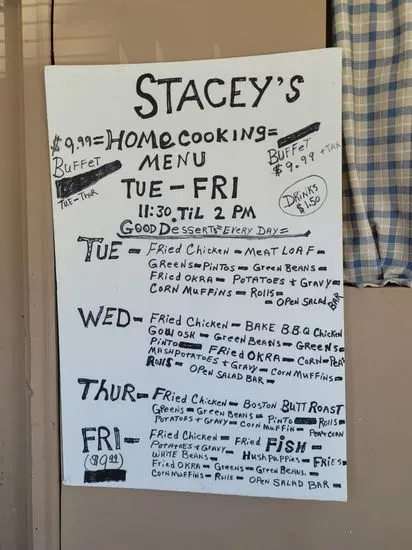 STACEY'S
$9.99=HOMECOOKING=
BUFFET
TUE-THUR
MENU
BUFFET
$9.99 +TAX
TUE-FRI
11:30 TIL 2 PM
DRINKS
$1.50
GOOD DESSERTS EVERY DAY=
TUE- FRIED CHICKEN - MEAT LOAF -
GREENS-PINTOS- GREEN BEANS-
FRIED OKRA - POTATOES + GRAVY-
CORN MUFFINS - ROLLS-
- OPEN SALAD BAR
WED- FRIED CHICKEN - BAKE B.B.Q CHICKEN
GOULOSH - GREEN BEANS - GREENS-
PINTO FRIED OKRA - CORN-PEAS
MASHPOTATOES + GRAVY - CORN MUFFINS-
ROLLS - OPEN SALAD BAR-
THUR- FRIED CHICKEN - BOSTON BUTT ROAST
GREENS - GREEN BEANS - PINTO ROLLS-
POTATOES + GRAVY - CORN MUFFIN - PEA+CORN
FRI- FRIED CHICKEN - FRIED FISH-
($9.99) POTATOES + GRAVY -
WHITE BEANS- HUSHPUPPIES- FRIES
FRIED OKRA - GREENS - GREEN BEANS.
CORN MUFFINS - ROLLS - OPEN SALAD BAR -